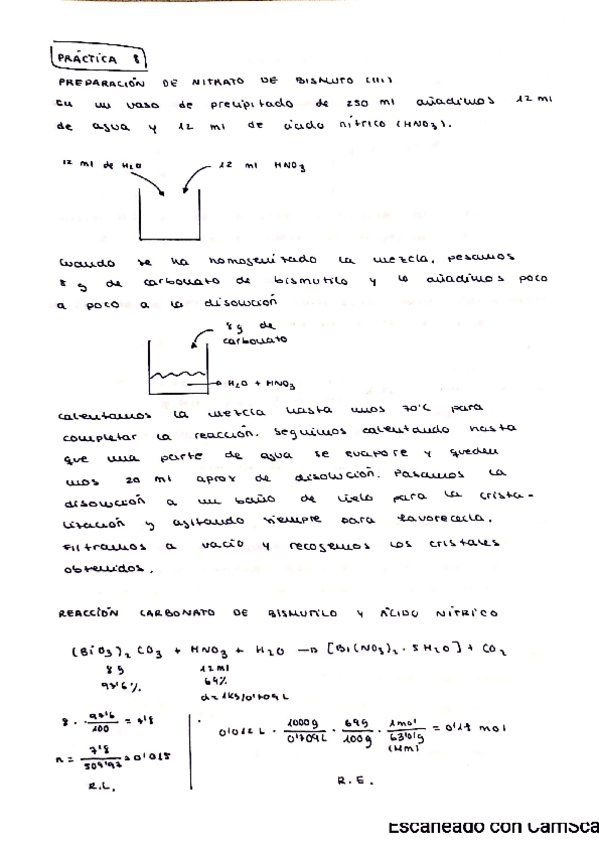 PRÁCTICA 8
PREPARACIÓN DE NITRATO DE BISMUTO (III)
En un vaso de precipitado de 250 ml añadimos 12 ml
de agua y 12 ml de ácido nítrico (HNO3).
12 ml de H2O
12 ml HNO3
Cuando se ha homogenizado la mezcla, pesamos
8 g de carbonato de bismutilo y lo añadimos poco
a poco a la disolución
8g de
carbonato
H2O + HNO3
Calentamos la mezcla hasta unos 70°C para
completar la reacción. Seguimos calentando hasta
que una parte de agua se evapore y queden
unos 20 ml aprox de disolución. Pasamos la
disolución a un baño de hielo para la crista-
lización y agitando siempre para favorecerla.
Filtramos a vacío y recogemos los cristales
obtenidos.
REACCIÓN CARBONATO DE BISMUTILO Y ÁCIDO NÍTRICO
(BiO3)2 CO3 + HNO3 + H2O → [Bi(NO3)2 · 5H2O] + CO2
8g 12ml
97'6% 69%
d = 1kg/0'709L
8 · 97'6/100 = 7'8
0'012 L · 1000g/0'709L · 69g/100g · 1mol/63'01g (Mm) = 0'17 mol
n = 7'8/509'97 = 0'015
R.L. R.E.
Escaneado con CamSca